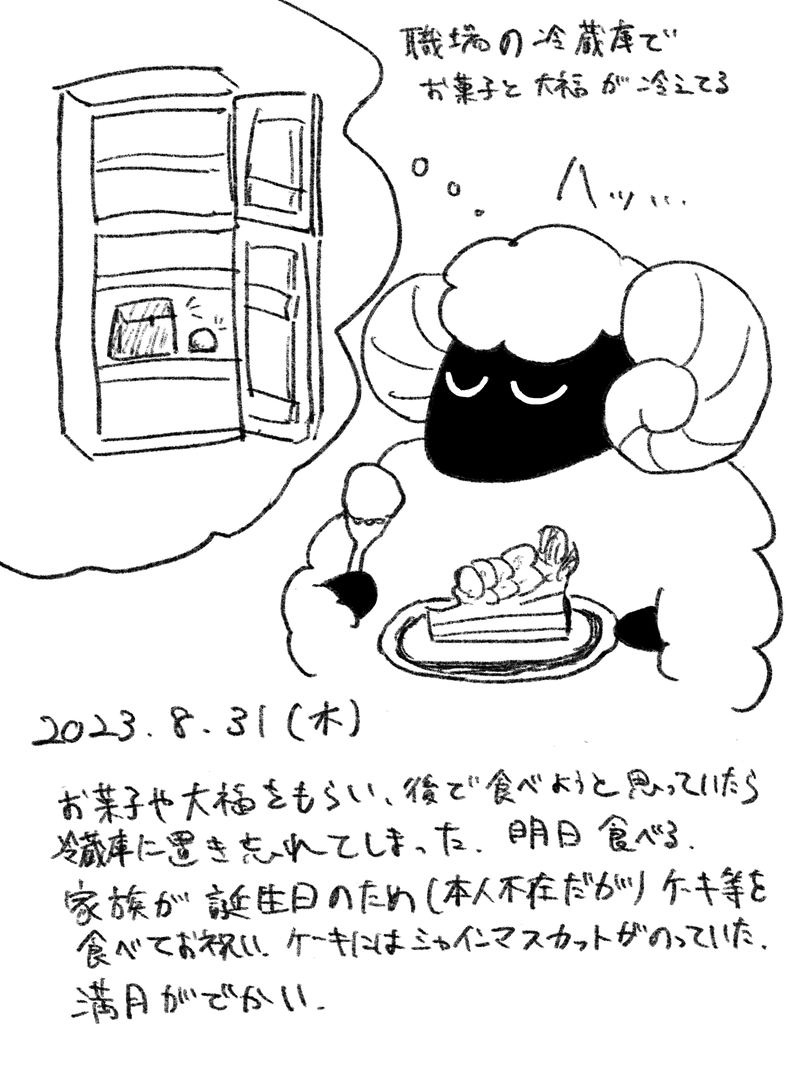 職場の冷蔵庫で
お菓子と大福が冷えてる
ハッ…
2023.8.31(木)
お菓子や大福をもらい、後で食べようと思っていたら
冷蔵庫に置き忘れてしまった。明日食べる。
家族が誕生日のため(本人不在だが)ケーキ等を
食べてお祝い。ケーキにはシャインマスカットがのっていた。
満月がでかい。